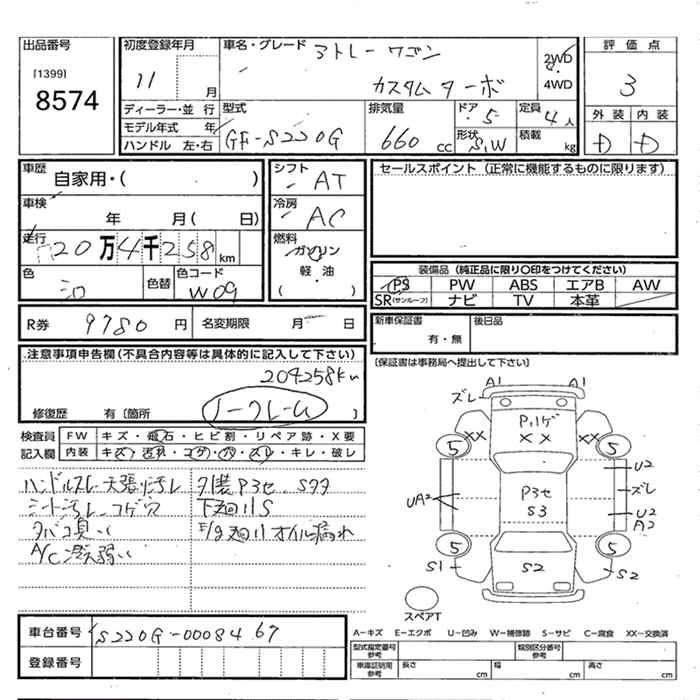 出品番号
[1399]
8574
初度登録年月
11 月
ディーラー・並 行
モデル年式 年
ハンドル 左・右
車名・グレード アトレーワゴン
カスタムターボ
2WD
4WD
型式
GF-S220G
排気量
660 cc
ドア 5
形状 S,W
定員 4 人
積載 kg
評価点
3
外装 内装
D D
車歴
自家用・( )
車検
年 月( 日)
走行
20万4千258 km
色
シロ
色替
色コード
W09
シフト
AT
冷房
AC
燃料
ガソリン
軽・油
( )
セールスポイント (正常に機能するものに限ります)
装備品 (純正品に限り〇印をつけてください)
PS PW ABS エアB AW
SR(サンルーフ) ナビ TV 本革
R券 9780 円 名変期限 月 日
新車保証書
有・無
後日品
注意事項申告欄(不具合内容等は具体的に記入して下さい)
204258km
修復歴 有〔箇所 ノーフレーム 〕
〔保証書は事務局へ提出して下さい〕
検査員 FW キズ・飛石・ヒビ割・リペア跡・X要
記入欄 内装 キズ・汚れ・コゲ・穴・スレ・キレ・破レ
ハンドルスレ 天張り汚レ
シート汚レ コゲ穴
タバコ臭い
A/C 冷え弱い
外装P3セ、Sタタ
下廻りS
E/g廻りオイル漏れ
A1 A1
ズレ
P,ハゲ
XX XX XX
5 5
U2
UA2
P3セ
S3
ズレ
U2
A2
5 5
S1 S2 S2
スペアT
車台番号 S220G-0008467
登録番号
A-キズ E-エクボ U-凹み W-補修跡 S-サビ C-腐食 XX-交換済
型式指定番号
参考
類別区分番号
参考
車庫証明用
参考
長さ cm 幅 cm 高さ cm